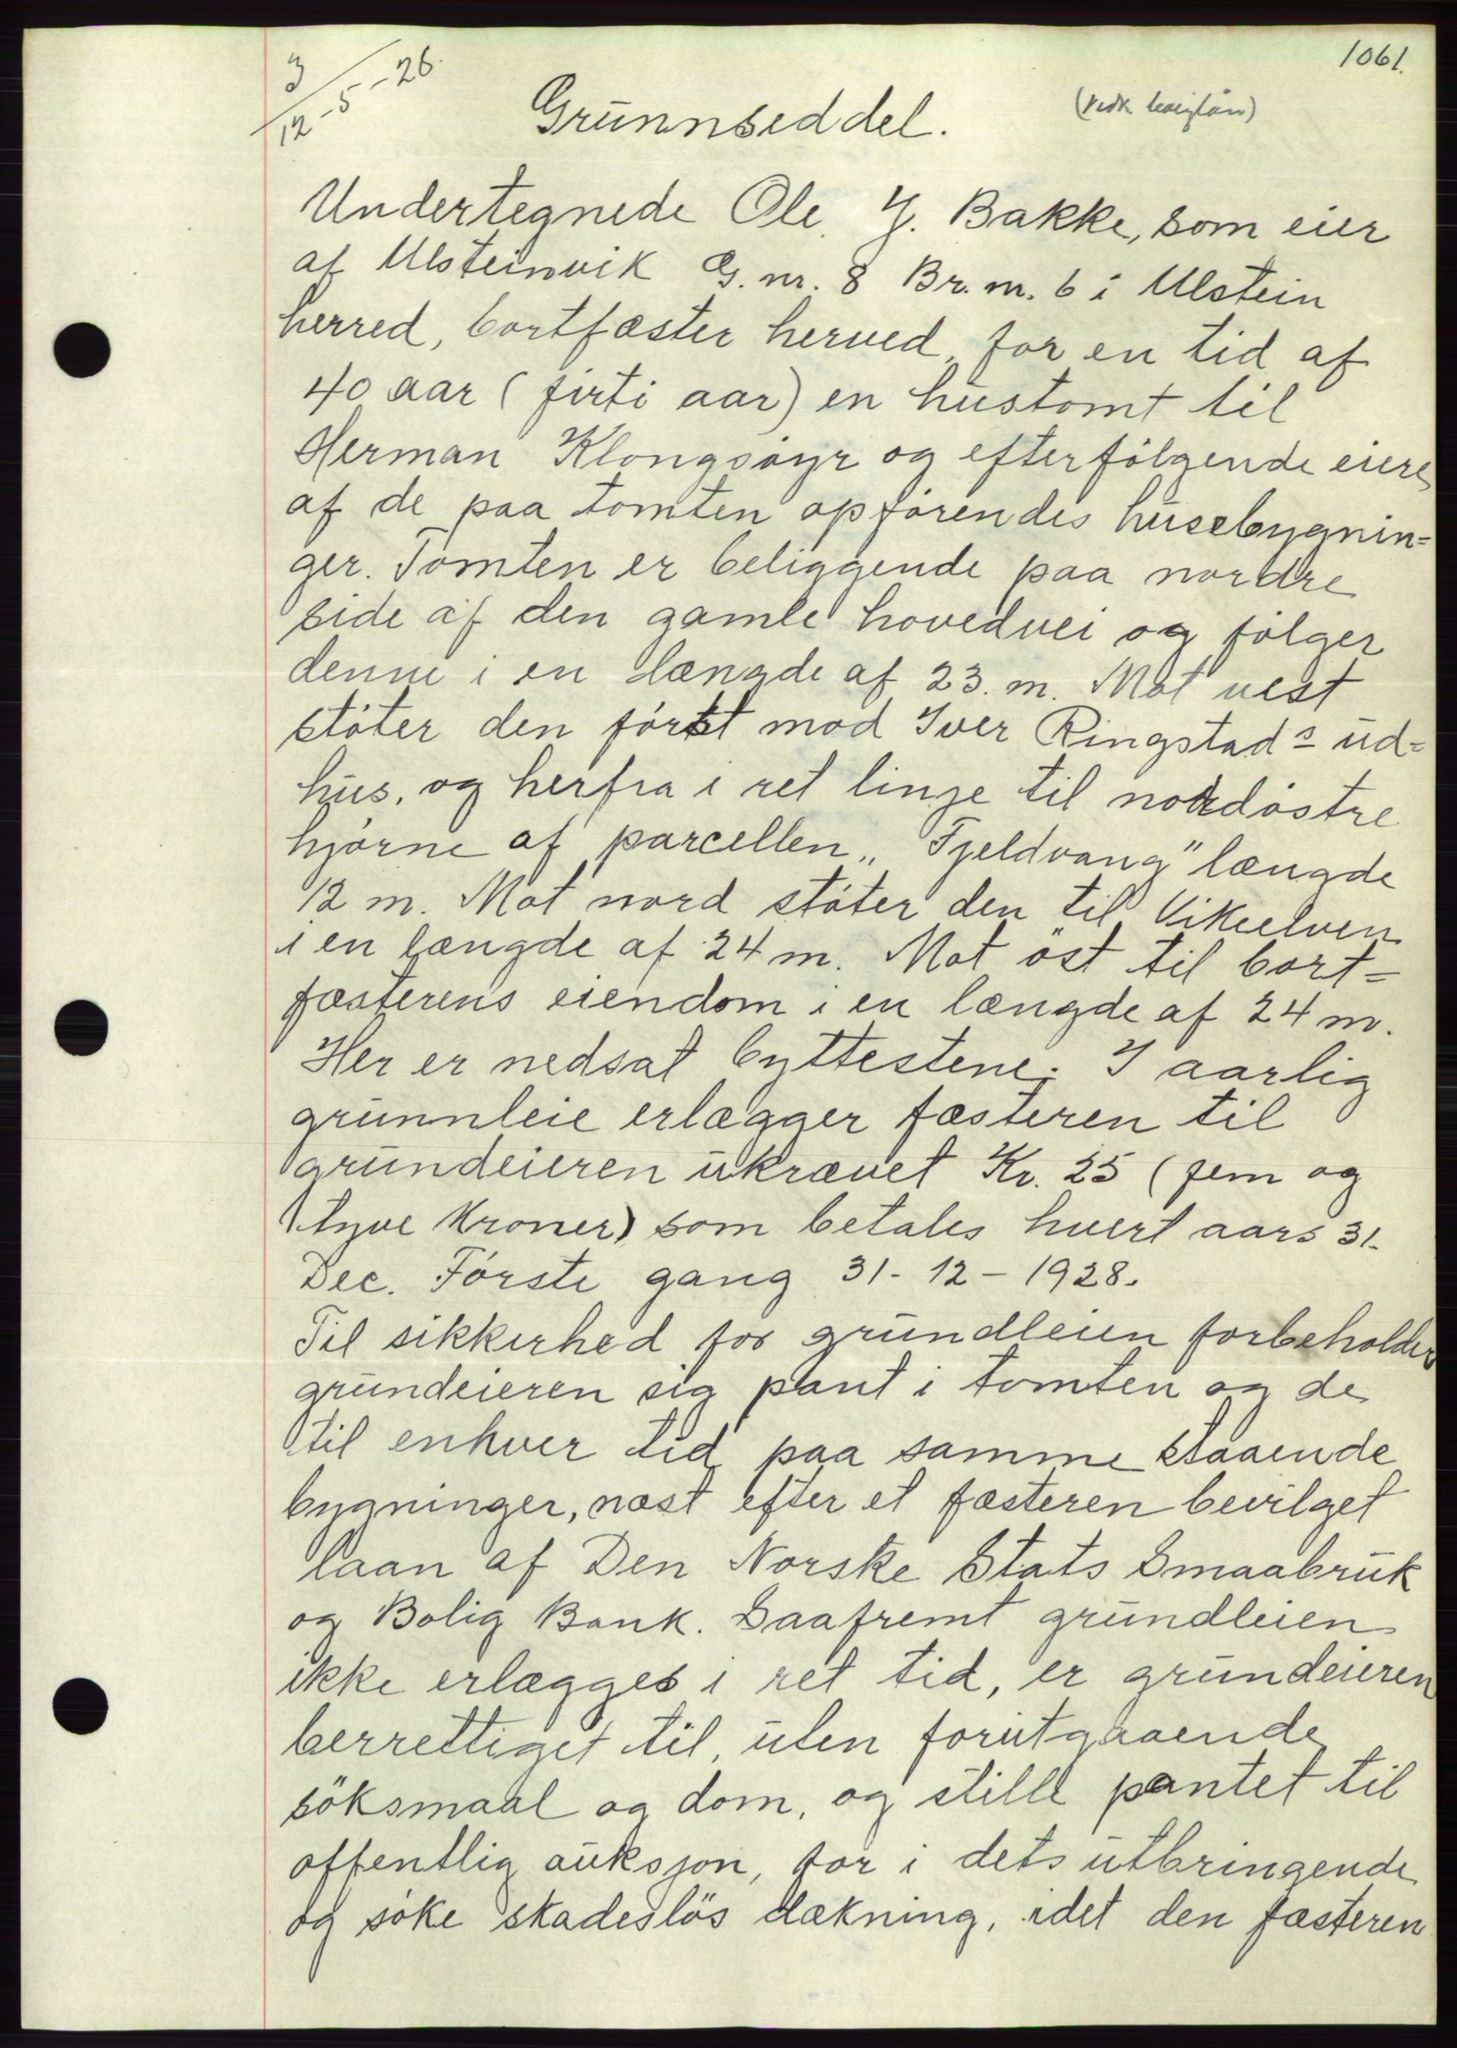 1061.
3
12-5-28.
Grunnseddel.
(vedk.
Undertegnede Ole J. Bakke, som eier
af Ulsteinvik G.nr. 8 Br.nr. 6 i Ulstein
herred, bortfæster herved for en tid af
40 aar (firti aar) en hustomt til
Herman Klongsøyr og efterfølgende eiere
af de paa tomten opførendes husebygnin=
ger. Tomten er beliggende paa nordre
side af den gamle hovedvei og følger
denne i en længde af 23. m. Mot vest
støter den først mod Iver Ringstads ud=
hus, og herfra i ret linje til nordøstre
hjørne af parcellen „Fjeldvang" længde
12 m. Mot nord støter den til Vikeelven
i en længde af 24 m. Mot öst til bort=
fæsterens eiendom i en længde af 24 m.
Her er nedsat byttestene. I aarlig
grunnleie erlægger fæsteren til
grundeieren ukrævet Kr. 25 (fem og
tyve Kroner) som betales hvert aars 31.
Dec. Første gang 31-12-1928.
Til sikkerhed for grundleien forbeholder
grundeieren sig pant i tomten og de
til enhver tid paa samme staaende
bygninger, næst efter et fæsteren bevilget
laan af Den Norske Stats Smaabruk
og Bolig Bank. Saafremt grundleien
ikke erlægges i ret tid, er grundeieren
berrettiget til, uten forutgaaende
söksmaal og dom, og stille pantet til
offentlig auksjon, for i dets utbringende
og søke skadeslös dækning, idet den fæsteren